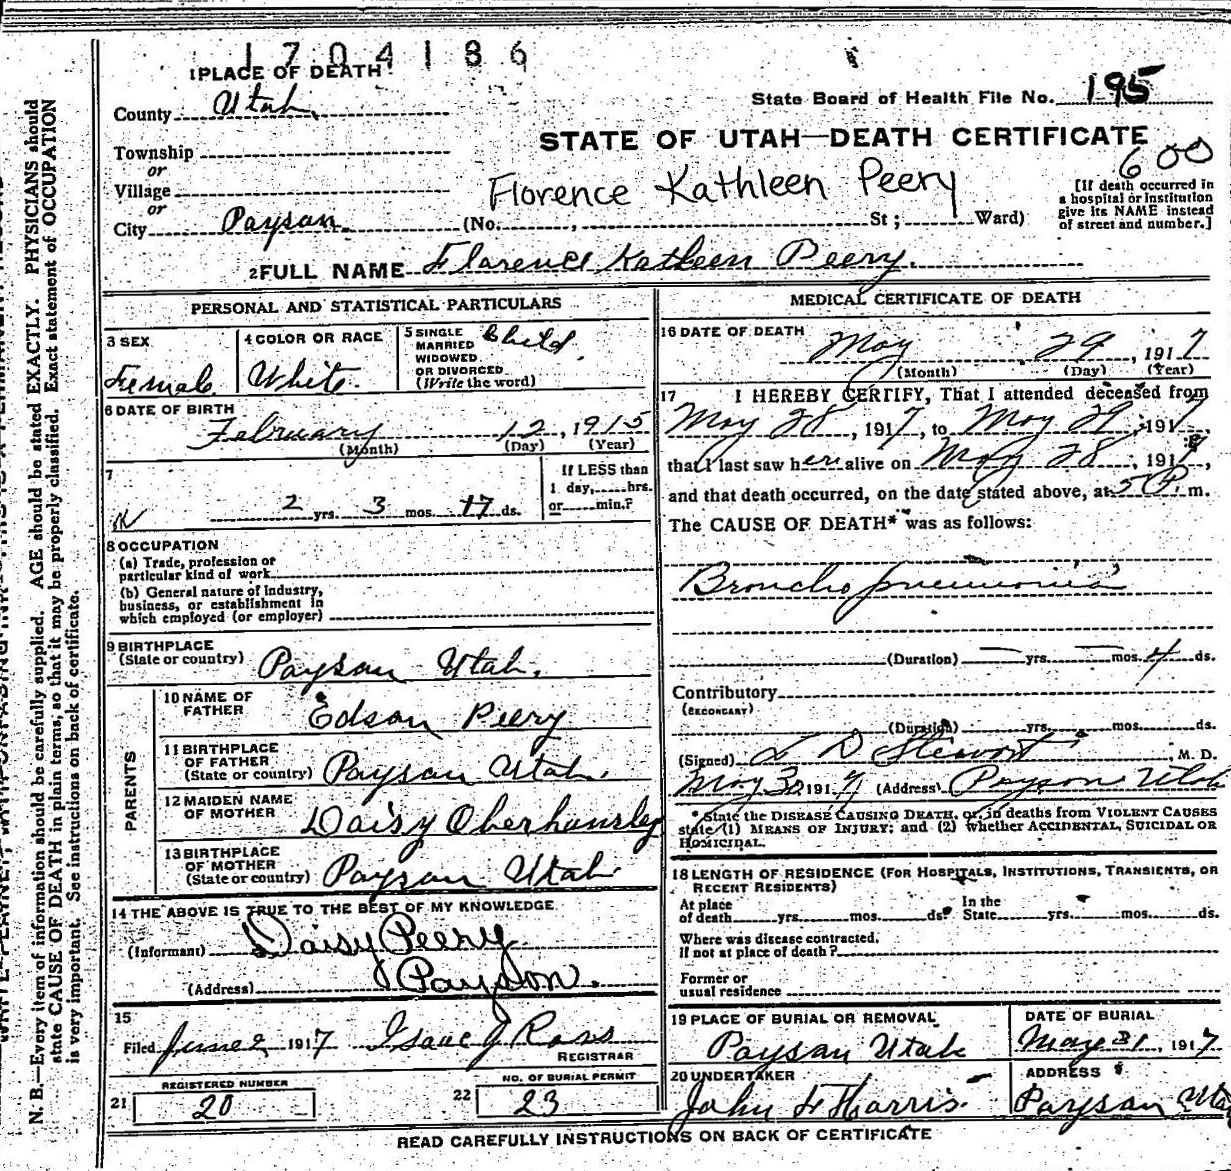 1 7 0 4 1 8 6
1 PLACE OF DEATH
County Utah
State Board of Health File No. 195
STATE OF UTAH—DEATH CERTIFICATE
600
Township
or
Village
or
City Payson
Florence Kathleen Peery
(No. , St ; Ward)
[If death occurred in
a hospital or institution
give its NAME instead
of street and number.]
2 FULL NAME Florence Katleen Peery.
PERSONAL AND STATISTICAL PARTICULARS
3 SEX
Female
4 COLOR OR RACE
White
5 SINGLE
MARRIED
WIDOWED
OR DIVORCED
(Write the word)
Child
6 DATE OF BIRTH
February 12, 1915
(Month) (Day) (Year)
7
2 yrs. 3 mos. 17 ds.
If LESS than
1 day, hrs.
or min.?
8 OCCUPATION
(a) Trade, profession or
particular kind of work
(b) General nature of industry,
business, or establishment in
which employed (or employer)
9 BIRTHPLACE
(State or country) Payson Utah.
PARENTS
10 NAME OF
FATHER Edson Peery
11 BIRTHPLACE
OF FATHER
(State or country) Payson Utah.
12 MAIDEN NAME
OF MOTHER Daisy Oberhansley
13 BIRTHPLACE
OF MOTHER
(State or country) Payson Utah
14 THE ABOVE IS TRUE TO THE BEST OF MY KNOWLEDGE
(Informant) Daisy Peery
(Address) Payson.
15
Filed June 2 1917 Isaac J Ross
REGISTRAR
21 REGISTERED NUMBER
20
22 NO. OF BURIAL PERMIT
23
MEDICAL CERTIFICATE OF DEATH
16 DATE OF DEATH
May 29, 1917
(Month) (Day) (Year)
17 I HEREBY CERTIFY, That I attended deceased from
May 28, 1917, to May 29, 1917,
that I last saw her alive on May 28, 1917,
and that death occurred, on the date stated above, at 5 P. m.
The CAUSE OF DEATH* was as follows:
Broncho pneumonia
(Duration) — yrs. — mos. 4 ds.
Contributory
(SECONDARY)
(Duration) yrs. mos. ds.
(Signed) L D Stewart M. D.
May 30 1917 (Address) Payson Utah
*State the DISEASE CAUSING DEATH, or, in deaths from VIOLENT CAUSES
state (1) MEANS OF INJURY; and (2) whether ACCIDENTAL, SUICIDAL OR
HOMICIDAL.
18 LENGTH OF RESIDENCE (FOR HOSPITALS, INSTITUTIONS, TRANSIENTS, OR
RECENT RESIDENTS)
At place
of death yrs. mos. ds.
In the
State yrs. mos. ds.
Where was disease contracted,
if not at place of death?
Former or
usual residence
19 PLACE OF BURIAL OR REMOVAL
Payson Utah
DATE OF BURIAL
May 31, 1917
20 UNDERTAKER
John F Harris
ADDRESS
Payson Uta
READ CAREFULLY INSTRUCTIONS ON BACK OF CERTIFICATE
N. B.—Every item of information should be carefully supplied. AGE should be stated EXACTLY. PHYSICIANS should
state CAUSE OF DEATH in plain terms, so that it may be properly classified. Exact statement of OCCUPATION
is very important. See instructions on back of certificate.